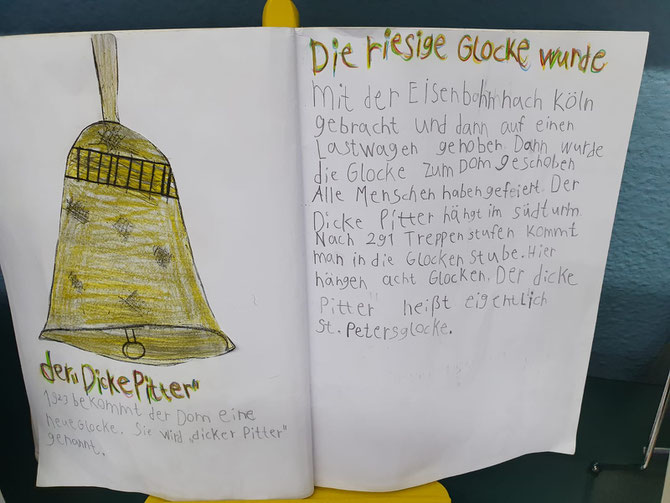 der „Dicke Pitter"
1923 bekommt der Dom eine
neue Glocke. Sie wird „dicker Pitter"
genannt.
Die riesige Glocke wurde
mit der Eisenbahn nach Köln
gebracht und dann auf einen
Lastwagen gehoben. Dann wurde
die Glocke zum Dom geschoben
Alle Menschen haben gefeiert. Der
Dicke Pitter hängt im südturm.
Nach 291 Treppenstufen kommt
man in die Glocken stube. Hier
hängen acht Glocken. Der dicke
Pitter" heißt eigentlich
St. Petersglocke.